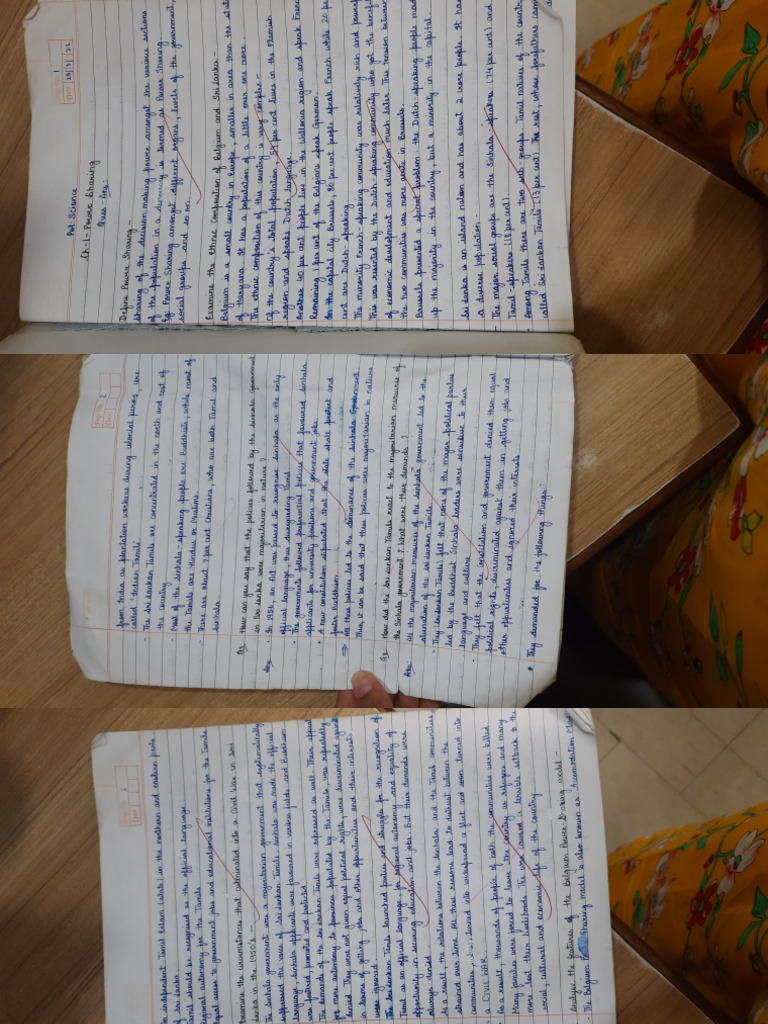 Page No. 1
Date 28 3 22
Pol. Science
Ch-1- Power Sharing
Ques-Ans:
Define Power Sharing -
Sharing of the decision making power amongst the various sections
of the population in a democracy is termed as Power Sharing
Eg: Power Sharing amongst different organs, levels of the government,
social groups and so on.
Examine the ethnic Composition of Belgium and Sri Lanka -
Belgium is a small country in Europe, smaller in area than the state
of Haryana. It has a population of a little over one crore.
The ethnic composition of this country is very complex -
Of the country's total population, 59 per cent lives in the Flemish
region and speaks Dutch language.
Another 40 per cent people live in the Wallonia region and speak French
Remaining 1 per cent of the Belgians speak German
In the capital city Brussels, 80 per cent people speak French while 20 per
cent are Dutch-speaking.
The minority French-speaking community was relatively rich and powerful
This was resented by the Dutch-speaking community who got the benefit
of economic development and education much later. This tension between
the two communities was more acute in Brussels.
Brussels presented a special problem: the Dutch-speaking people made
up the majority in the country, but a minority in the capital.
Sri Lanka is an island nation and has about 2 crore people. It has
a diverse population -
The major social groups are the Sinhala-speakers (74 per cent) and
Tamil-speakers (18 per cent).
Among Tamils there are two sub groups Tamil natives of the country
called Sri Lankan Tamils (13 per cent). The rest, whose forefathers came
Page No. 2
Date
from India as plantation workers during colonial period, are
called 'Indian Tamils'.
• The Sri Lankan Tamils are concentrated in the north and east of
the country.
• Most of the Sinhala-speaking people are Buddhists, while most of
the Tamils are Hindus or Muslims.
There are about 7 per cent Christians, who are both Tamil and
Sinhala
Q2 How can you say that the policies followed by the Sinhala Government
in Sri Lanka were majoritarian in nature?
Ans • In 1956, an Act was passed to recognise Sinhala as the only
official language, thus disregarding Tamil
• The governments followed preferential policies that favoured Sinhala
applicants for university positions and government jobs.
• A new constitution stipulated that the state shall protect and
foster Buddhism.
⇒ All these policies led to the dominance of the Sinhala Government
Thus, it can be said that these policies were majoritarian in nature
Q3 How did the Sri Lankan Tamils react to the majoritarian measures of
the Sinhala government? What were their demands?
Ans: All the majoritarian measures of the Sinhala government led to the
alienation of the Sri Lankan Tamils.
• They (Sri Lankan Tamils) felt that none of the major political parties
led by the Buddhist Sinhala leaders were sensitive to their
language and culture
• They felt that the constitution and government denied them equal
political rights, discriminated against them in getting jobs and
other opportunities and ignored their interests
• They demanded for the following things:
an independent Tamil Eelam (state) in the northern and eastern parts
of Sri Lanka.
Tamil should be recognised as the official language
Regional autonomy for the Tamils
Equal access to government jobs and educational institutions for the Tamils
Examine the circumstances that culminated into a Civil War in Sri
Lanka in the 1980's -
The Sinhala government was a majoritarian government that systematically
suppressed the voice of Sri Lankan Tamils. Sinhala was made the official
language, Sinhala applicants were favoured in various fields and Buddhism
was fostered, promoted and protected.
The demands of the Sri Lankan Tamils were repressed as well. Their appeal
for more autonomy to provinces populated by the Tamils, was repeatedly
denied. They were not given equal political rights, were discriminated against
in terms of getting jobs and other opportunities and their interests
were ignored.
The Sri Lankan Tamils launched parties and struggles for the recognition of
Tamil as an official language, for regional autonomy and equality of
opportunity in securing education and jobs. But these demands were
always denied.
As a result, the relations between the Sinhala and the Tamil communities
strained over time. All these reasons lead to distrust between the
communities, it turned into widespread conflict and soon turned into
a CIVIL WAR.
As a result, thousands of people of both the communities were killed.
Many families were forced to leave the country as refugees and many
more lost their livelihoods. The war caused a terrible setback to the
social, cultural and economic life of the country
Analyse the features of the Belgium Power-sharing model -
The Belgium Power Sharing model is also known as 'Accomodation Model